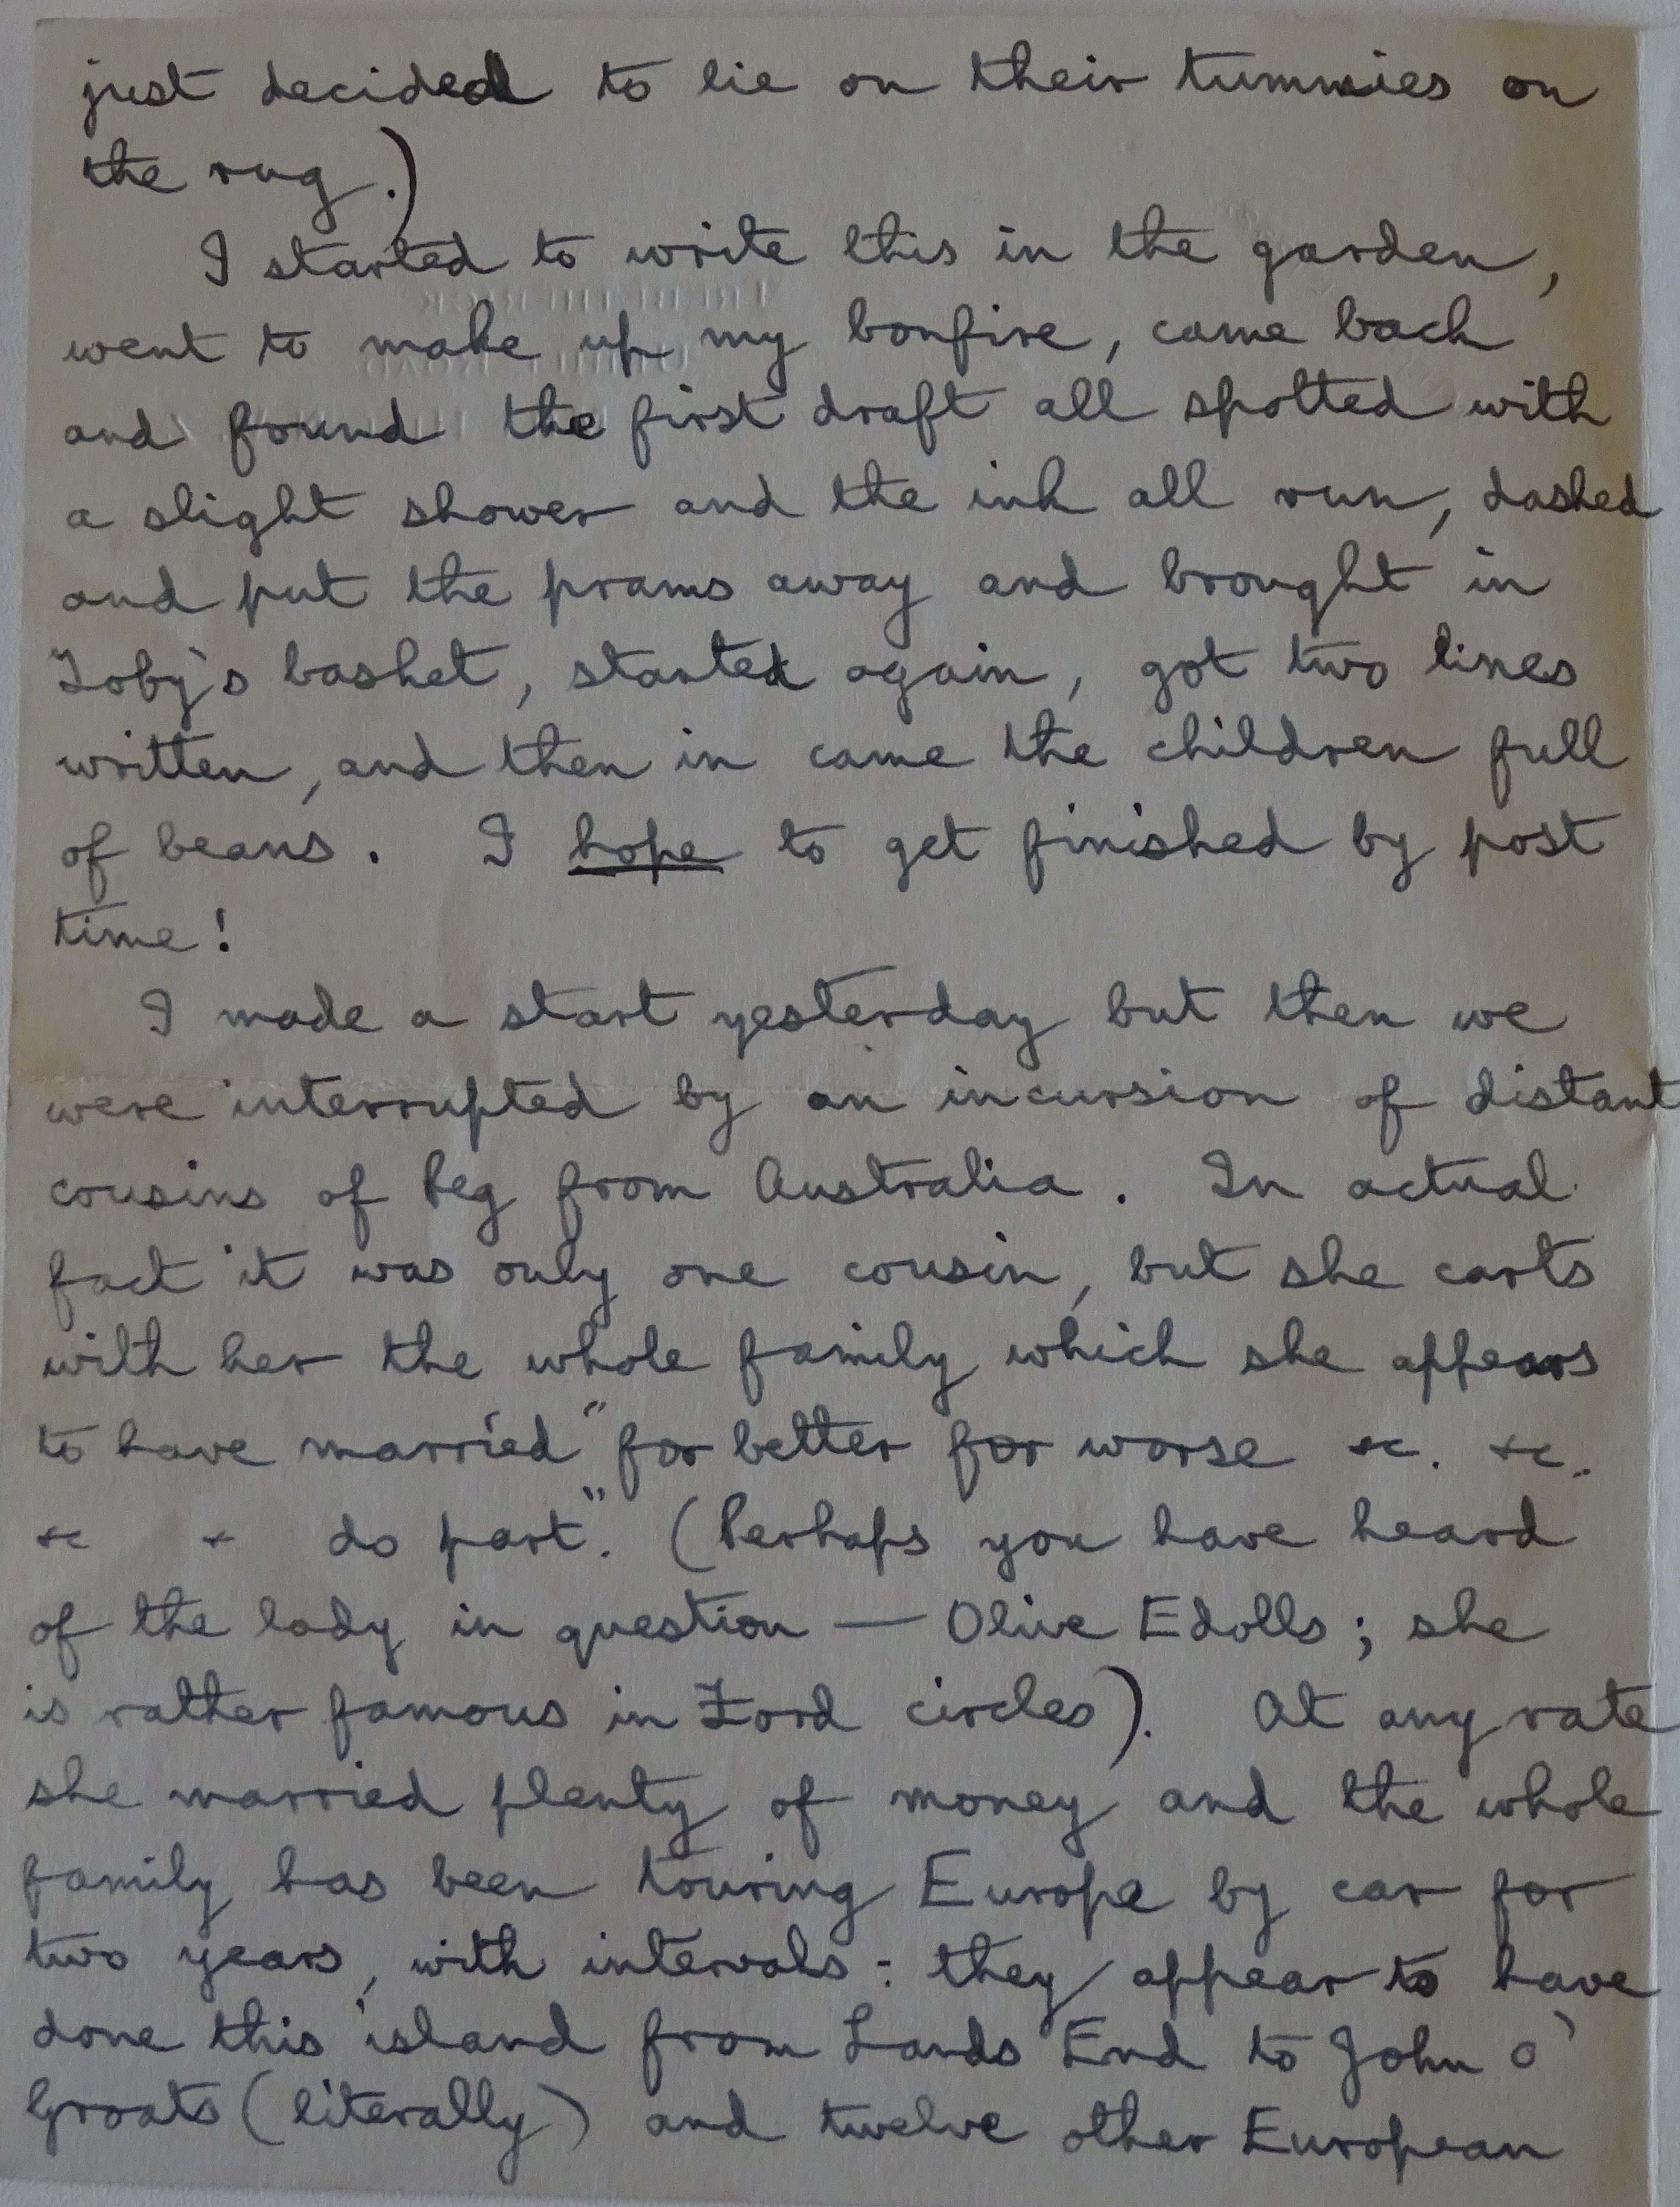 just decided to lie on their tummies on
the rug.)
I started to write this in the garden,
went to make up my bonfire, came back
and found the first draft all spotted with
a slight shower and the ink all run, dashed
and put the prams away and brought in
Toby's basket, started again, got two lines
written, and then in came the children full
of beans. I hope to get finished by post
time!
I made a start yesterday but then we
were interrupted by an incursion of distant
cousins of Peg from Australia. In actual
fact it was only one cousin, but she carts
with her the whole family which she appears
to have married "for better for worse &c. &c.
&c & do part". (Perhaps you have heard
of the lady in question — Olive Edolls; she
is rather famous in Ford circles). At any rate
she married plenty of money and the whole
family has been touring Europe by car for
two years, with intervals: they appear to have
done this island from Lands End to John o'
Groats (literally) and twelve other European